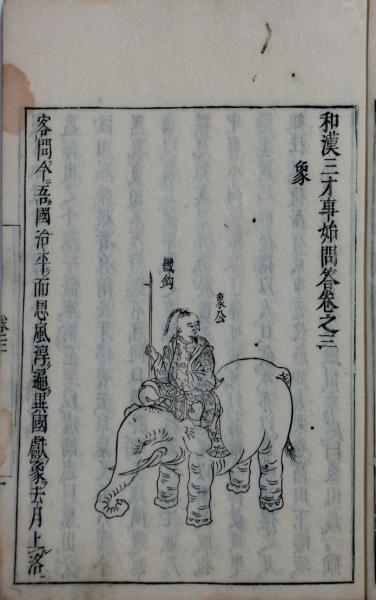 和漢三才事始問答卷之三
象
象公
鐵鈎
客問今吾國治平而恩風淳遍異國獻象去月上洛